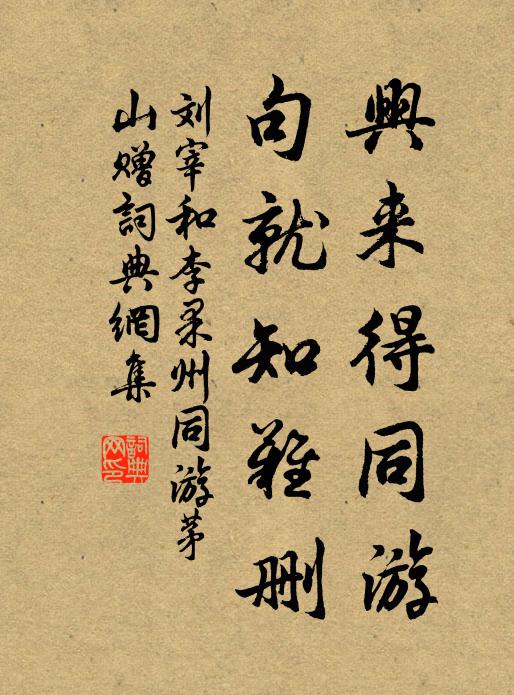 興来得同游
句就知難删
刘宰和李果州同游茅
山赠詞典網集
詞典
网印